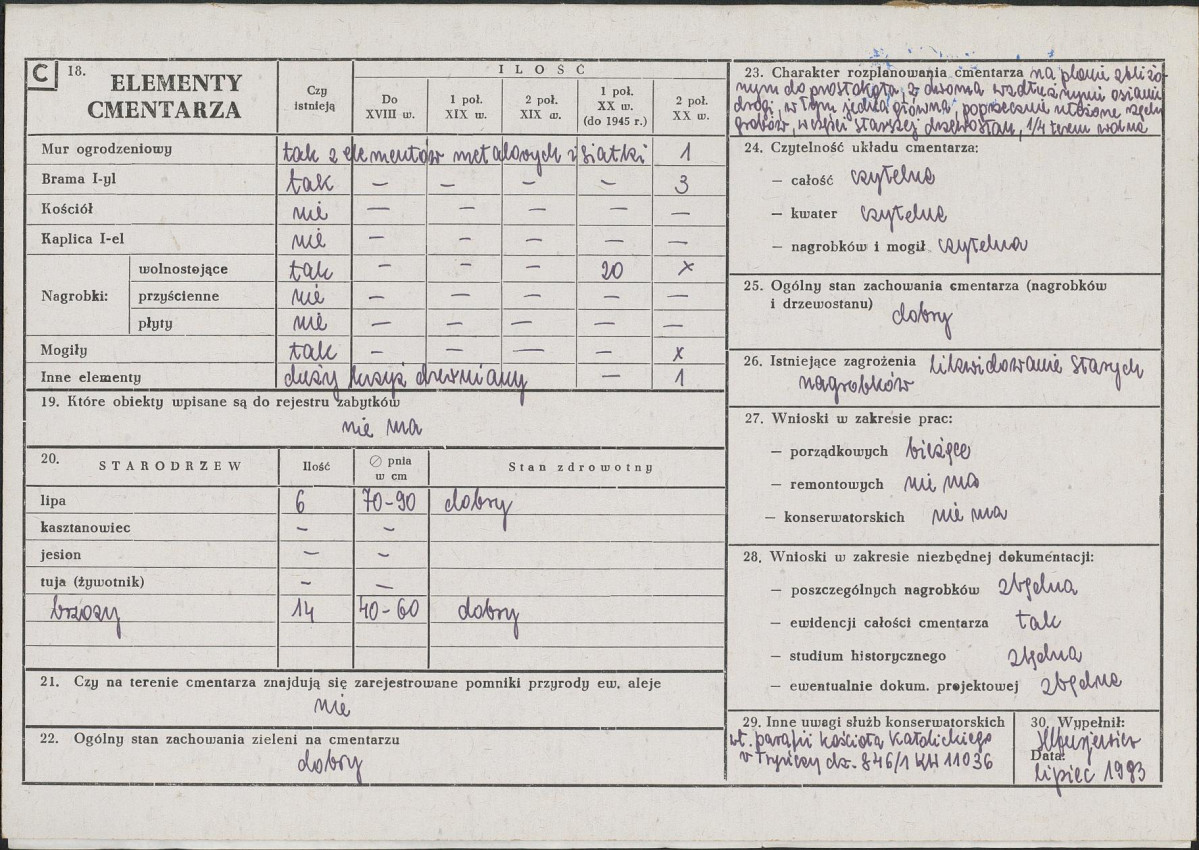 C 18. ELEMENTY CMENTARZA
Czy istnieją
ILOŚĆ
Do XVIII w.
1 poł. XIX w.
2 poł. XIX w.
1 poł. XX w. (do 1945 r.)
2 poł. XX w.
Mur ogrodzeniowy tak z elementów metalowych i siatki 1
Brama I-yl tak — — — — 3
Kościół nie — — — — —
Kaplica I-el nie — — — — —
Nagrobki: wolnostojące tak — — — 20 x
przyścienne nie — — — — —
płyty nie — — — — —
Mogiły tak — — — — x
Inne elementy duży krzyż drewniany — 1
19. Które obiekty wpisane są do rejestru zabytków
nie ma
20. STARODRZEW Ilość ∅ pnia w cm Stan zdrowotny
lipa 6 70-90 dobry
kasztanowiec — —
jesion — —
tuja (żywotnik) — —
brzozy 14 40-60 dobry
21. Czy na terenie cmentarza znajdują się zarejestrowane pomniki przyrody ew. aleje
nie
22. Ogólny stan zachowania zieleni na cmentarzu
dobry
23. Charakter rozplanowania cmentarza na planie zbliżo-
nym do prostokąta, z dwoma wzdłużnymi osiami
drogi, w tym jedna główna, poprzecznie ułożone rzędy
grobów, w części starszej drzewostan, 1/4 teren wolna
24. Czytelność układu cmentarza:
— całość czytelna
— kwater czytelne
— nagrobków i mogił czytelna
25. Ogólny stan zachowania cmentarza (nagrobków
i drzewostanu) dobry
26. Istniejące zagrożenia likwidowanie starych
nagrobków
27. Wnioski w zakresie prac:
— porządkowych bieżące
— remontowych nie ma
— konserwatorskich nie ma
28. Wnioski w zakresie niezbędnej dokumentacji:
— poszczególnych nagrobków zbędna
— ewidencji całości cmentarza tak
— studium historycznego zbędna
— ewentualnie dokum. projektowej zbędna
29. Inne uwagi służb konserwatorskich
wł. parafii kościoła katolickiego
w Tryńczy dz. 846/1 KW 11036
30. Wypełnił:
Data:
lipiec 1993